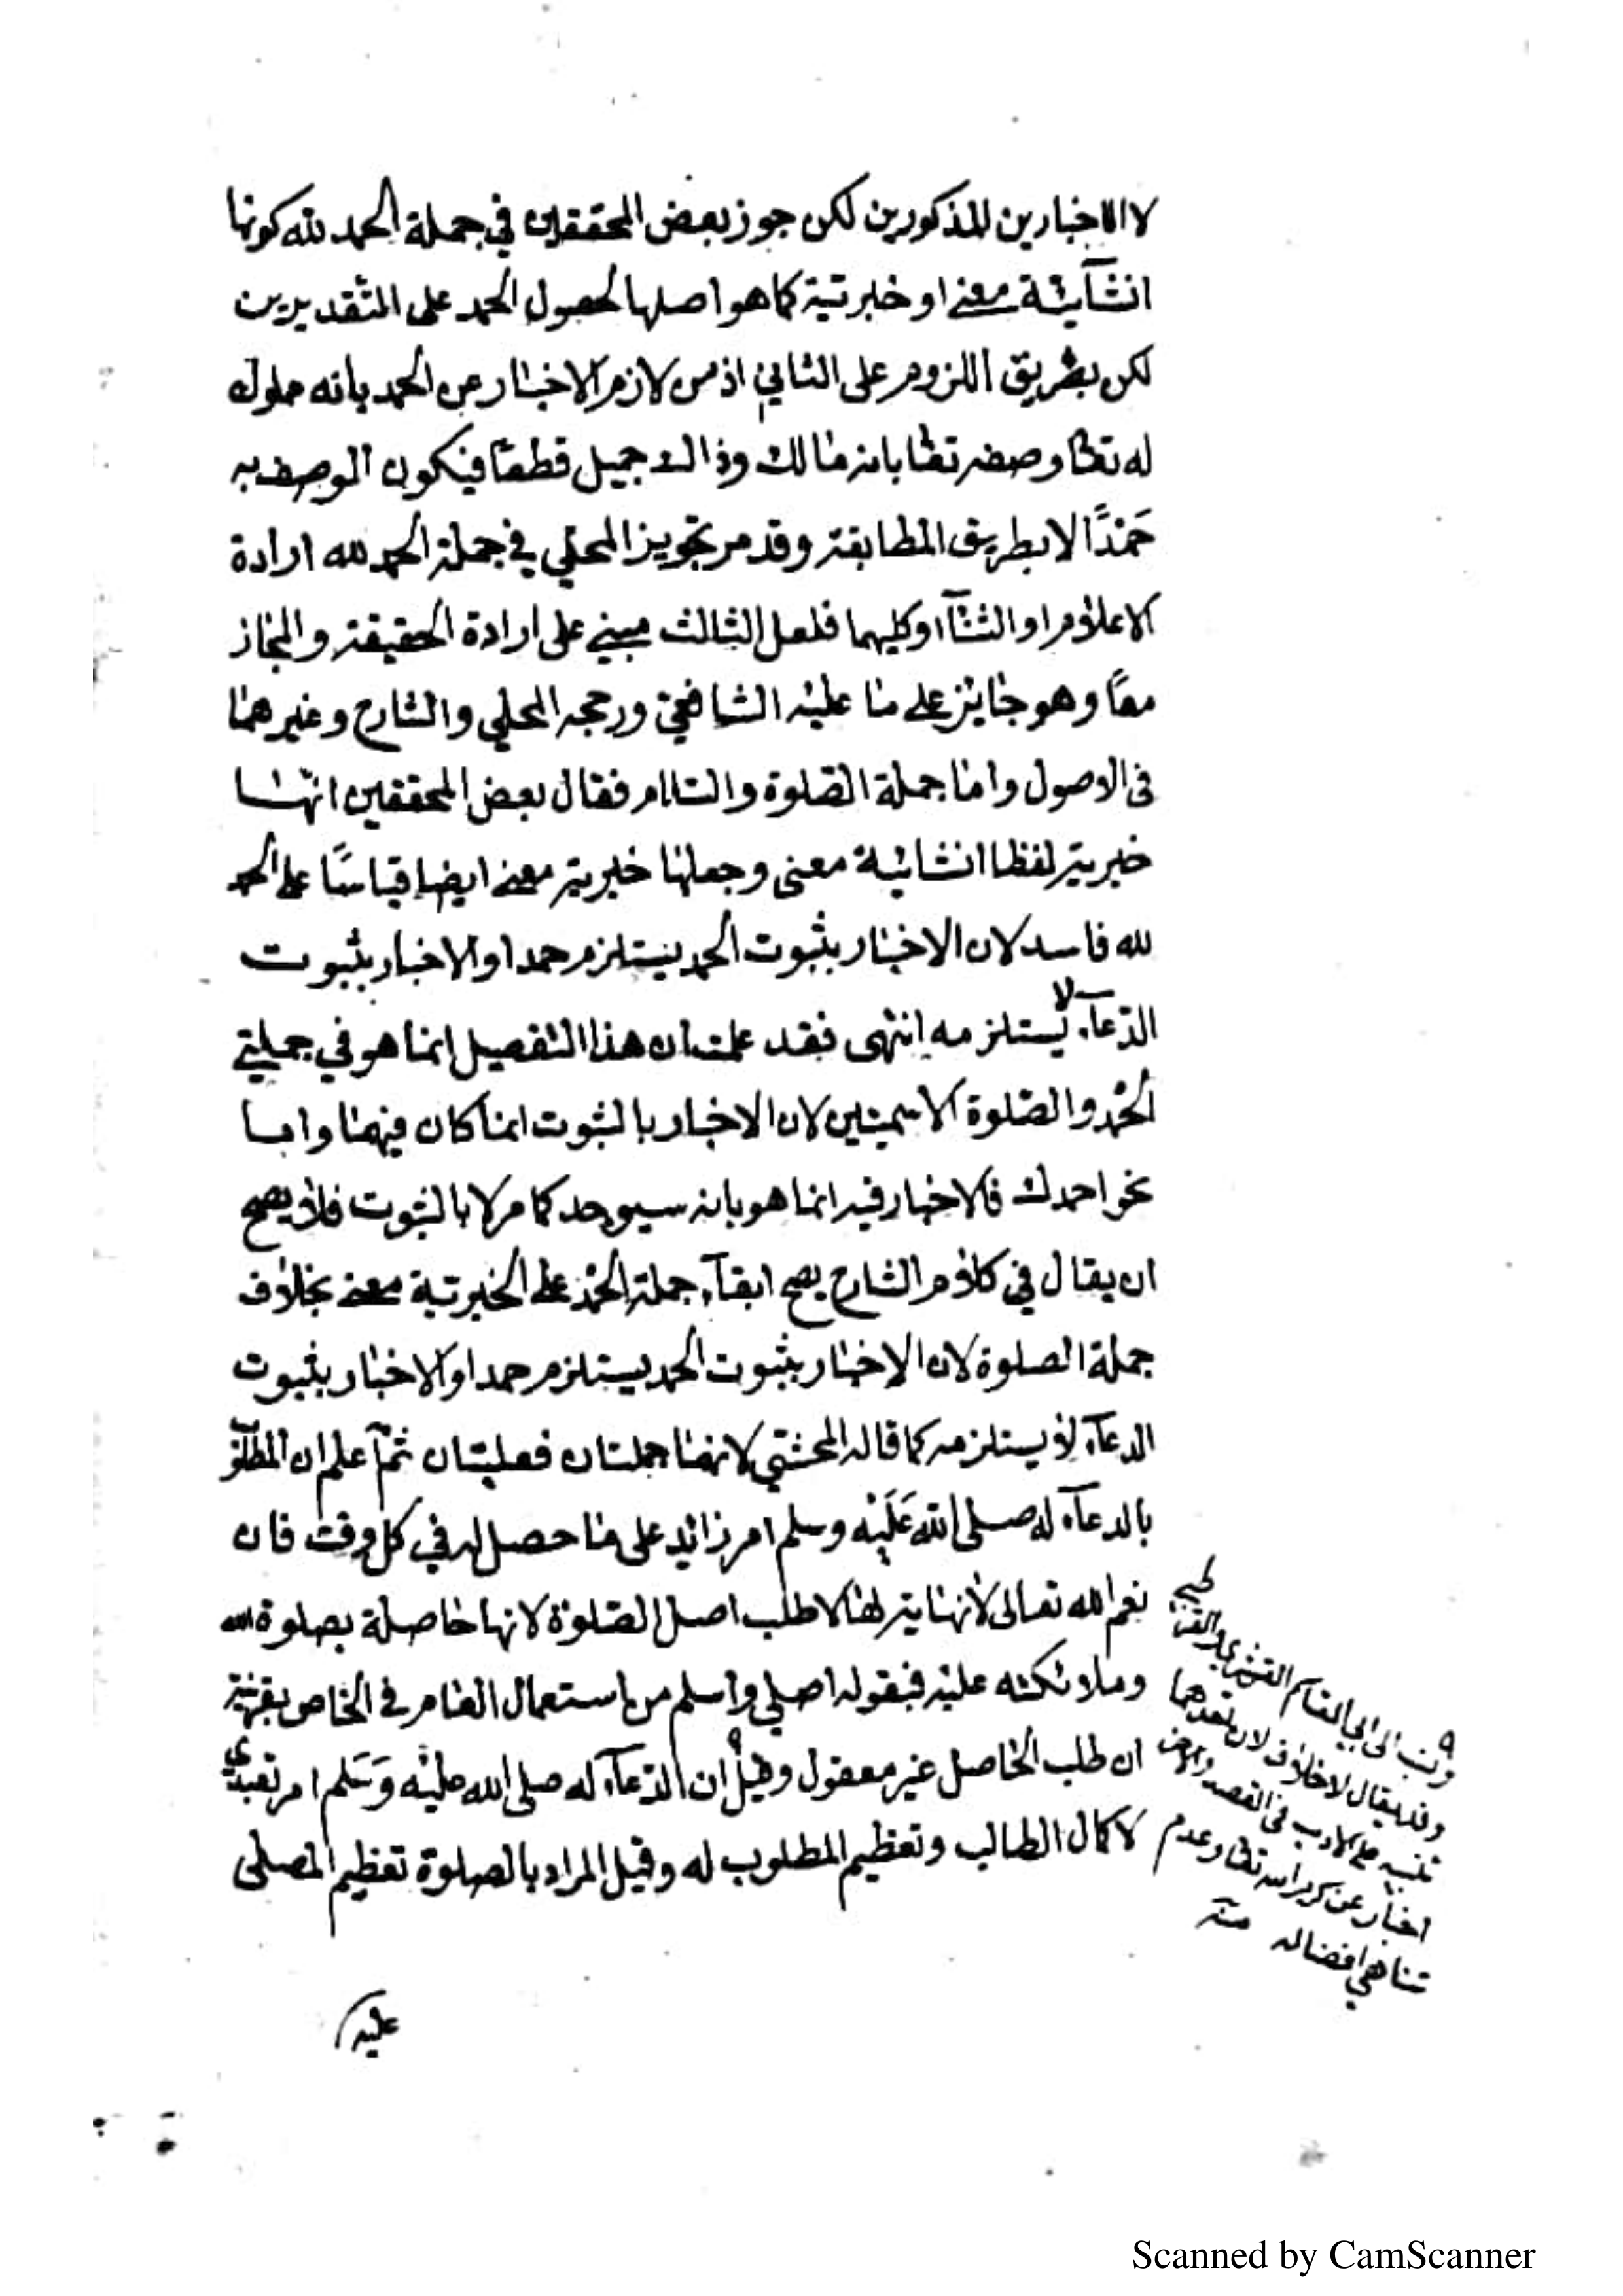 لا الاخبارين المذكورين لكن جوز بعض المحققين في جملة الحمد لله كونها
انشآئية معنى او خبرية كما هو اصلها لحصول الحمد على التقديرين
لكن بطريق اللزوم على الثاني اذ من لازم الاخبار عن الحمد بانه مملوك
له تعا وصفه تعا بانه مالك وذالك جميل قطعا فيكون الوصف به
حَمْدًا لا بطريق المطابقة وقد مر تجويز المحلي في جملة الحمد لله ارادة
الاعلام او الثنآ او كليهما فلعل الثالث مبني على ارادة الحقيقة والمجاز
معًا وهو جايز على ما عليه الشافعي ورجحه المحلي والشارح وغيرهما
في الاصول واما جملة الصّلوة والسّلام فقال بعض المحققين انها
خبرية لفظا انشائية معنى وجعلها خبرية معنى ايضا قياسًا على الحمد
لله فاسد لان الاخبار بثبوت الحمد يستلزم حمدا والاخبار بثبوت
الدّعآء لا يستلزمه انتهى فقد علمت ان هذا التفصيل انما هو في جملتي
الحمْد والصّلوة الاسميتين لان الاخبار بالثبوت انما كان فيهما واما
نحو احمدك فالاخبار فيه انما هو بانه سيوجد كما مر لا بالثبوت فلا يصح
ان يقال في كلام الشارح يصح ابقآء جملة الحمْد على الخبريّة معنى بخلاف
جملة الصلوة لان الاخبار بثبوت الحمد يستلزم حمدا والاخبار بثبوت
الدعآء لا يستلزمه كما قاله المحشّي لانهما جملتان فعليتان ثمّ آعلم ان المطلوب
بالدعآء له صلى الله عَلَيْه وسلم امر زائد على ما حصل له في كل وقت فان
نعم الله تعالى لا نهاية لها لا طلب اصل الصّلوة لانها حاصلة بصلوة الله
وملائكته عليه فبقوله اصلي واسلم من استعمال العام في الخاص بقرينة
ان طلب الحاصل غير معقول وقيل ان الدّعآء له صلى الله عليْه وَسَلم امر تعبدي
لا كمال الطالب وتعظيم المطلوب له وقيل المراد بالصلوة تعظيم المصلى
عليه
ونسب الى ابي القاسم القشيري والقرطبي
وقد يقال لا خلاف لان بعدهما
تنبيه على الادب في القصد والاخر
اخبار عن كرم الله تعا وعدم
تناهي افضاله منه